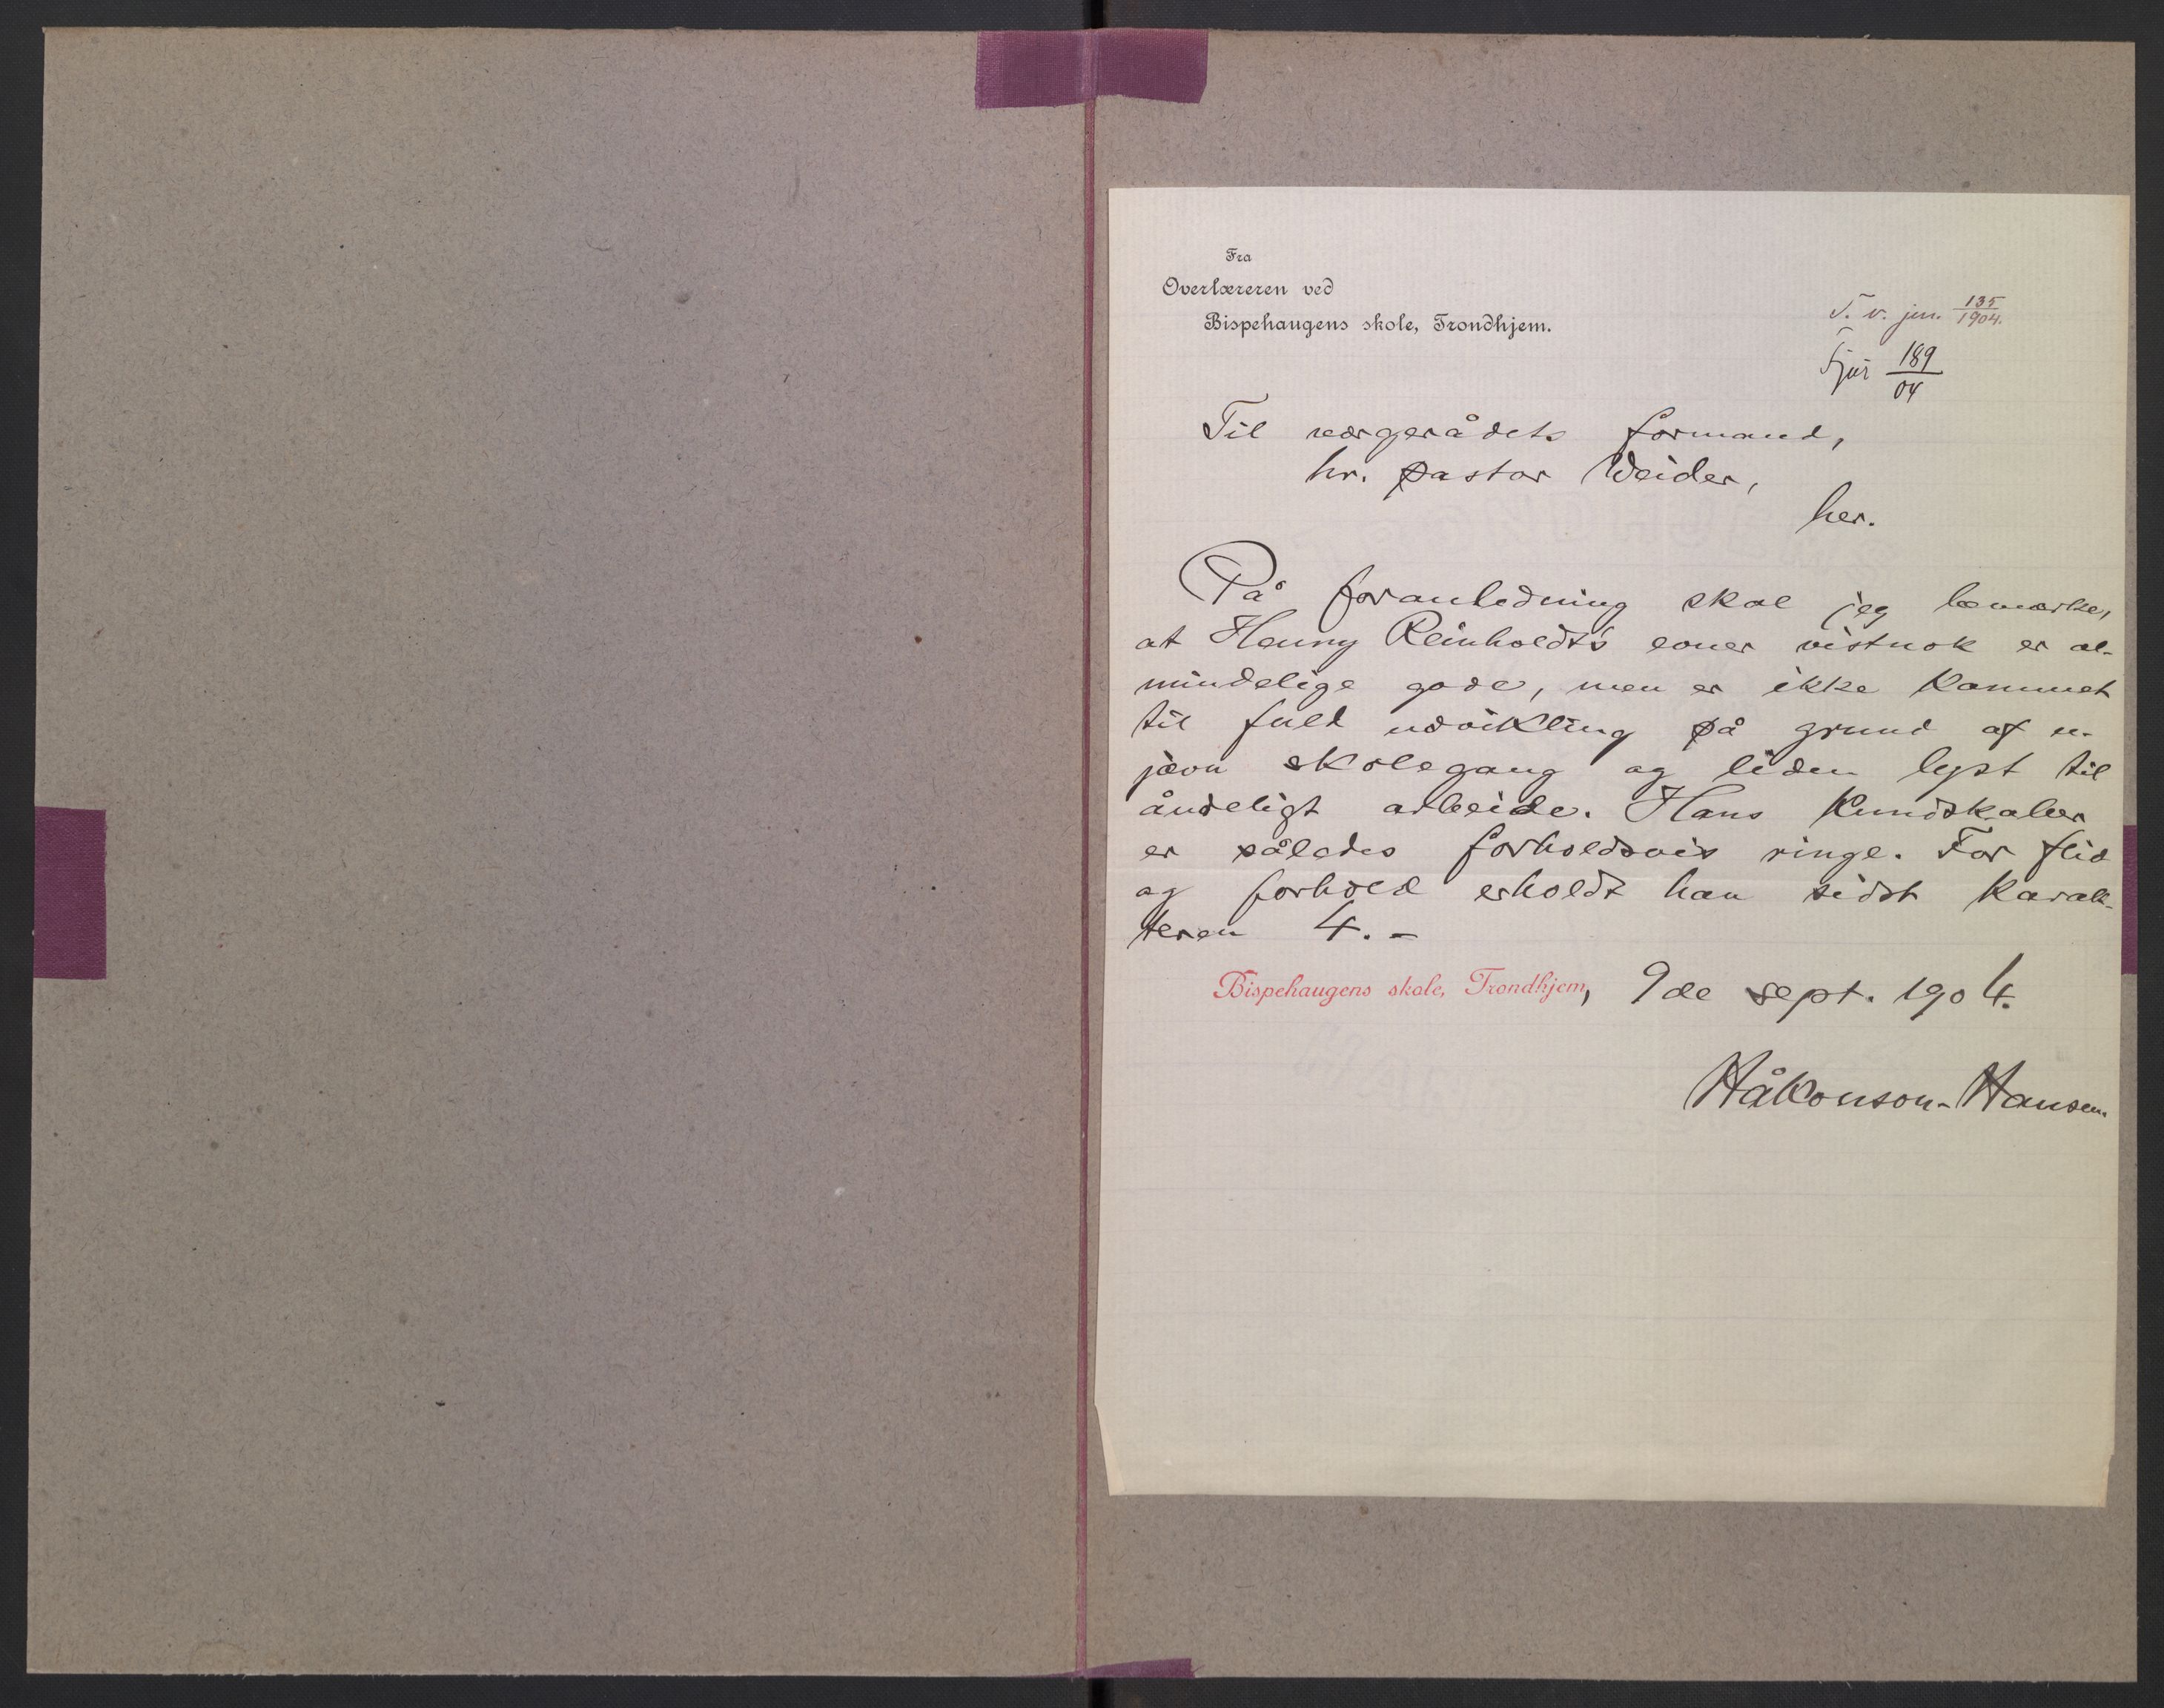 Fra
Overlæreren ved
Bispehaugens skole, Trondhjem.
T. v. jun. 135/1904.
Tjur 189/04
Til værgerådets formand,
hr. pastor Weider,
her.
På foranledning skal jeg bemærke,
at Henry Reinholdt's evner vistnok er al-
mindelige gode, men er ikke kommet
til fuld udvikling på grund af u-
jævn skolegang og liden lyst til
åndeligt arbeide. Hans kundskaber
er således forholdsvis ringe. For flid
og forhold erholdt han sidst karak-
teren 4.-
Bispehaugens skole, Trondhjem, 9de sept. 1904.
Håkonson-Hansen.